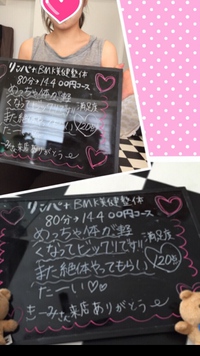 リンパ+BMK美健整体
80分→14400円コース
めっちゃ体が軽
くなってビックリです!! 満足度
また絶体やってもらい 120%
た〜い♡♡
ご来店ありがとう
リンパ+BMK美健整体
80分→14400円コース
めっちゃ体が軽
くなってビックリです!! 満足度
また絶体やってもらい 120%
た〜い♡♡
ご来店ありがとう